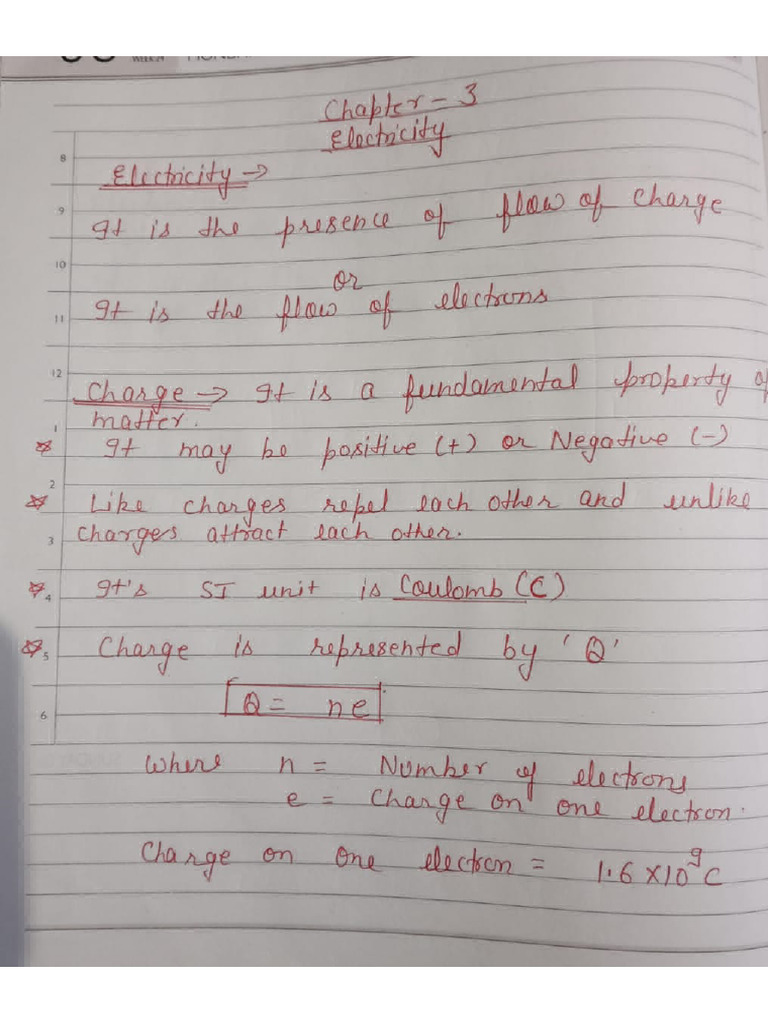 WEEK 24
Chapter - 3
Electricity
8
Electricity →
9
It is the presence of flow of charge
10
or
11
It is the flow of electrons
12
Charge → It is a fundamental property of
matter.
1
It may be positive (+) or Negative (-)
2
Like charges repel each other and unlike
3
charges attract each other.
4
It's SI unit is Coulomb (C)
5
Charge is represented by 'Q'
Q = ne
6
Where n = Number of electrons
e = Charge on one electron.
Charge on one electron = 1.6 × 10⁹ C